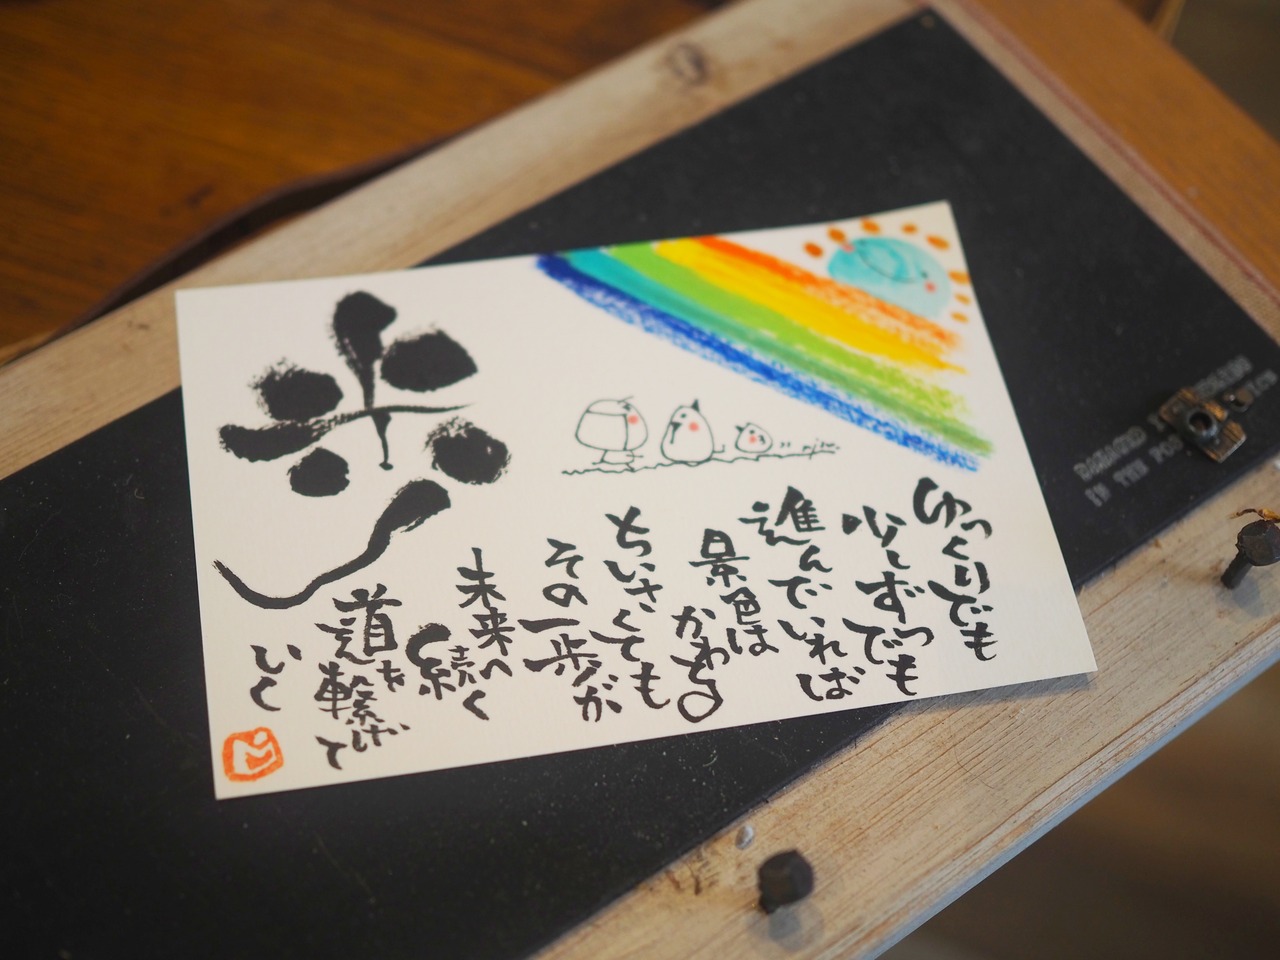 歩
ゆっくりでも
少しずつでも
進んでいれば
景色は
かわる
ちいさくても
その一歩が
未来へ
続く
道を
繋げて
いく
IN THE